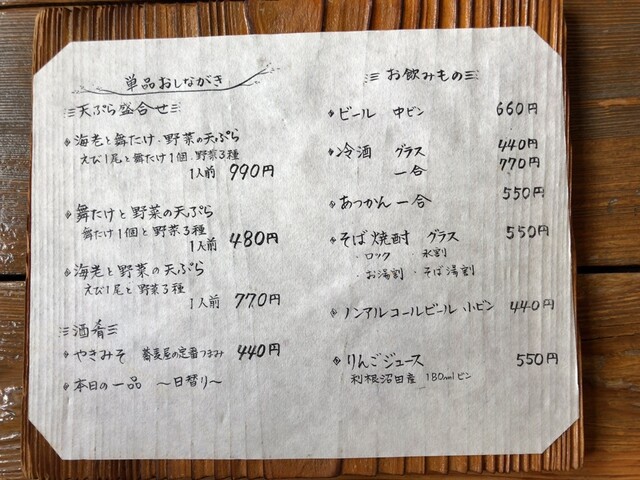 単品おしながき
天ぷら盛合せ
海老と舞たけ・野菜の天ぷら
えび1尾と舞たけ1個・野菜3種
1人前 990円
舞たけと野菜の天ぷら
舞たけ1個と野菜3種
1人前 480円
海老と野菜の天ぷら
えび1尾と野菜3種
1人前 770円
酒肴
やきみそ 蕎麦屋の定番つまみ 440円
本日の一品 〜日替り〜
お飲みもの
ビール 中ビン 660円
冷酒 グラス 440円
一合 770円
あつかん 一合 550円
そば焼酎 グラス 550円
・ロック ・水割
・お湯割 ・そば湯割
ノンアルコールビール 小ビン 440円
りんごジュース 550円
利根沼田産 180mlビン